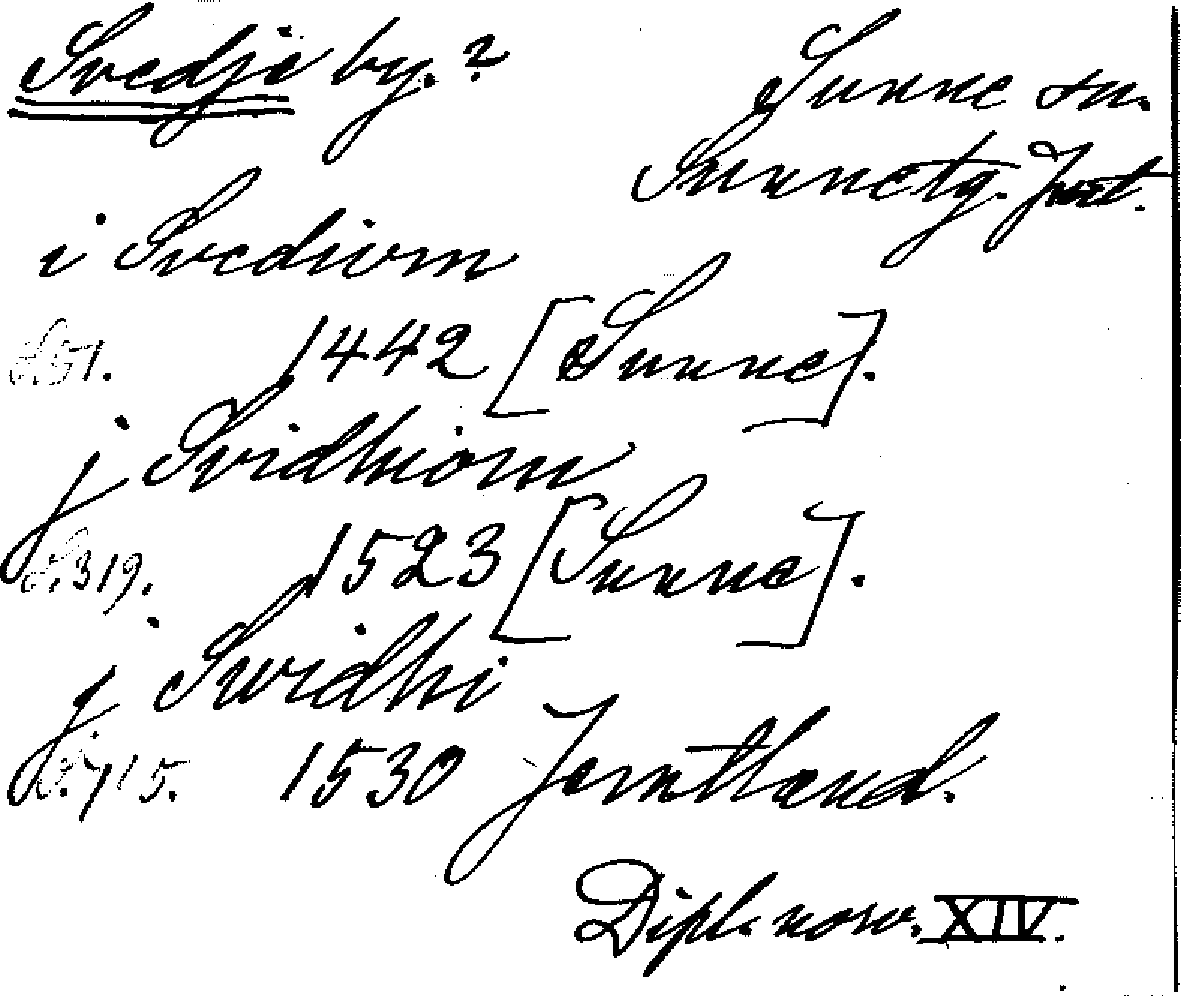 Svedje by.?
Sunne sn.
Sunnetg. Jmt.
i Svediom
S.51. 1442 [Sunne].
j Svidhiom
S.319. 1523 [Sunne].
j Swidhi
S.715. 1530 Jemtland.
Dipl. norv. XIV.